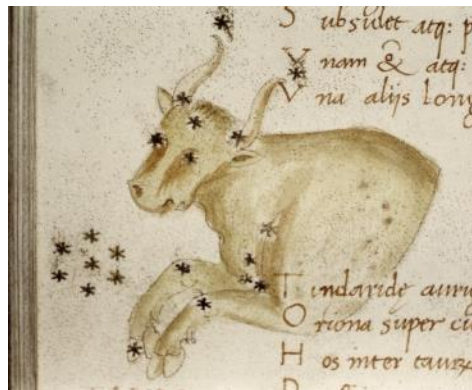 S ubsidet atq: p
V nam & atq:
V na alijs long
T indaridę auri
O riona super ci
H os inter tauro